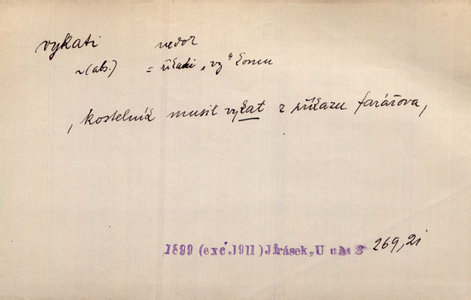 vykati nedok
~(abs.) = říkati „vy“ komu
, kostelník musil vykat z rozkazu farářova,
1899 (exc. 1911) Jirásek, U nás 3 269,21